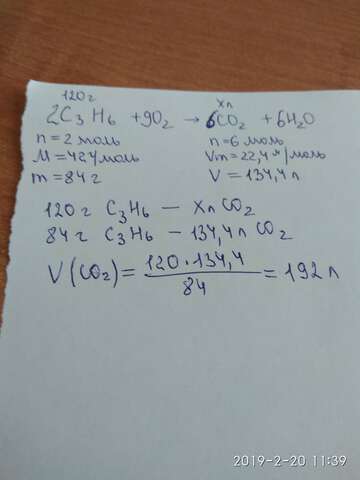 120г хл
2C3H6 + 9O2 → 6CO2 + 6H2O
n = 2 моль n = 6 моль
M = 42г/моль Vm = 22,4 л/моль
m = 84 г V = 134,4л
120 г C3H6 — Xл CO2
84 г C3H6 — 134,4л CO2
V(CO2) = 120·134,4 / 84 = 192 л
2019-2-20 11:39